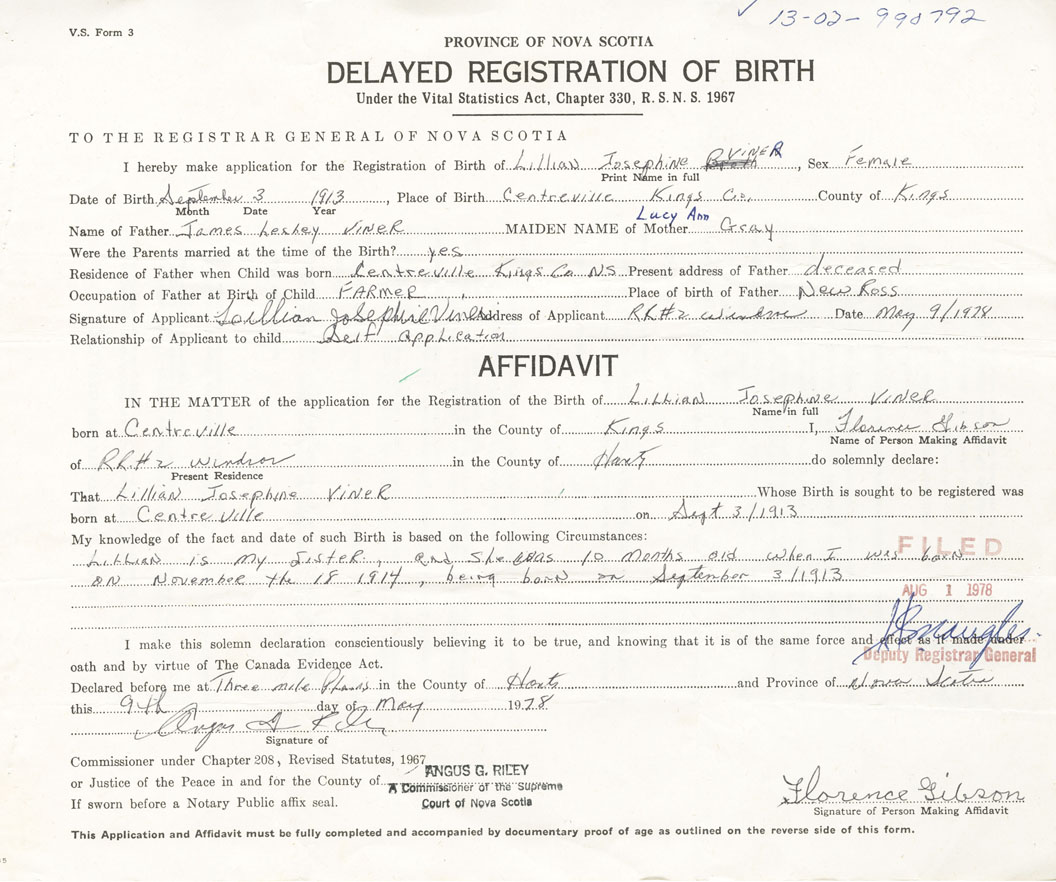 ✓ 13-02-990792
V.S. Form 3
PROVINCE OF NOVA SCOTIA
DELAYED REGISTRATION OF BIRTH
Under the Vital Statistics Act, Chapter 330, R.S.N.S. 1967
TO THE REGISTRAR GENERAL OF NOVA SCOTIA
I hereby make application for the Registration of Birth of Lillian Josephine VINER, Sex Female
Print Name in full
Date of Birth September 3 1913, Place of Birth Centreville Kings Co. County of Kings
Month Date Year
Lucy Ann
Name of Father James Lesley VINER MAIDEN NAME of Mother Gray
Were the Parents married at the time of the Birth? yes
Residence of Father when Child was born Centreville Kings Co NS Present address of Father deceased
Occupation of Father at Birth of Child FARMER Place of birth of Father New Ross
Signature of Applicant Lillian Josephine Viner Address of Applicant RR#2 Windsor Date May 9/1978
Relationship of Applicant to child Self Application
AFFIDAVIT
IN THE MATTER of the application for the Registration of the Birth of Lillian Josephine VINER
Name in full
born at Centreville in the County of Kings I, Florence Gibson
Name of Person Making Affidavit
of RR#2 Windsor in the County of Hants do solemnly declare:
Present Residence
That Lillian Josephine VINER Whose Birth is sought to be registered was
born at Centreville on Sept 3/1913
My knowledge of the fact and date of such Birth is based on the following Circumstances:
Lillian is my Sister, and She was 10 months old when I was born
on November the 18 1914, being born on September 3/1913
FILED
AUG 1 1978
I make this solemn declaration conscientiously believing it to be true, and knowing that it is of the same force and effect as if made under
Deputy Registrar General
oath and by virtue of The Canada Evidence Act.
Declared before me at Three mile Plains in the County of Hants and Province of Nova Scotia
this 9th day of May 1978
Angus G Riley
Signature of
Commissioner under Chapter 208, Revised Statutes, 1967
or Justice of the Peace in and for the County of
If sworn before a Notary Public affix seal.
ANGUS G. RILEY
A Commissioner of the Supreme
Court of Nova Scotia
Florence Gibson
Signature of Person Making Affidavit
This Application and Affidavit must be fully completed and accompanied by documentary proof of age as outlined on the reverse side of this form.